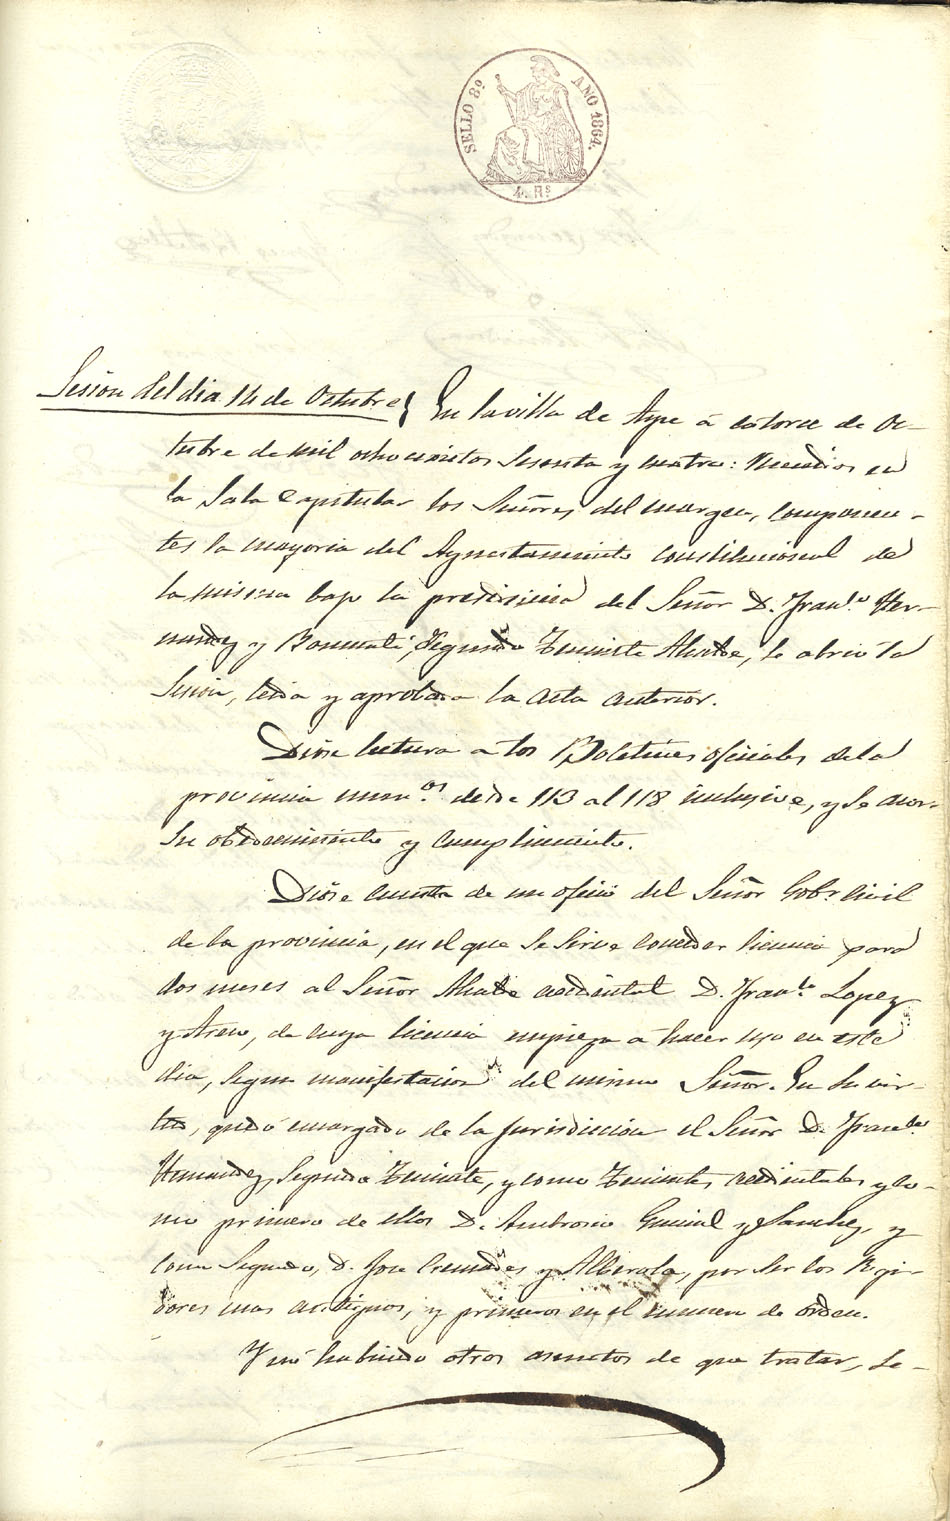 SELLO 8º AÑO 1864.
4 Rs
Sesion del dia 14 de Octubre } En la villa de Aspe á catorce de Oc-
tubre de mil ochocientos sesenta y cuatro: Reunidos en
la Sala Capitular los Señores del margen, componen-
tes la mayoria del Ayuntamiento constitucional de
la misma bajo la presidencia del Señor D. Franco. Her-
nandez y Bonmatí, Segundo Teniente Alcalde, se abrió la
Sesion, leida y aprobada la acta anterior.
Diose lectura a los Boletines oficiales de la
provincia numos. desde 113 al 118 inclusive, y se acor-
su obedecimiento y cumplimiento.
Diose cuenta de un oficio del Señor Gobr. Civil
de la provincia, en el que se sirve conceder licencia para
dos meses al Señor Alcalde accidental D. Franco. Lopez
y de cuya licencia empieza á hacer uso en este
dia, segun manifestacion del mismo Señor. En su vir-
tud, quedó encargado de la jurisdiccion el Señor D. Franco.
Hernandez, Segundo Teniente, y como Tenientes accidentales y co-
mo primero de ellos D. Ambrosio y Sanchez, y
como Segundo, D. Jose Cremades y Alberola, por ser los Regi-
dores mas antiguos, y primeros en el numero de orden.
Y no habiendo otros asuntos de que tratar, se-